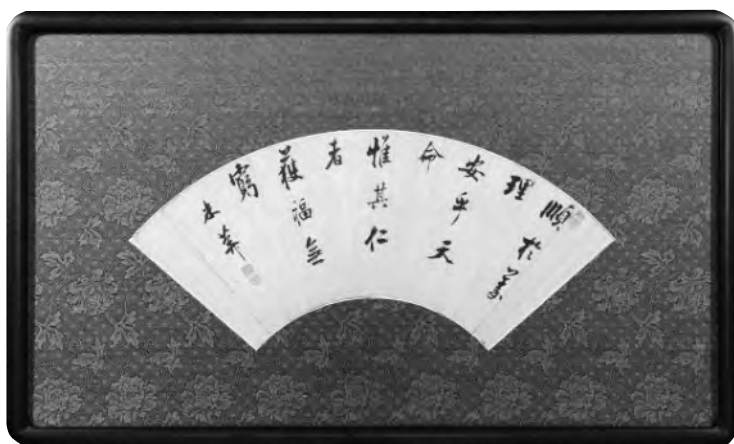 順於義
理
安乎天
命
惟其仁
者
獲福無
窮